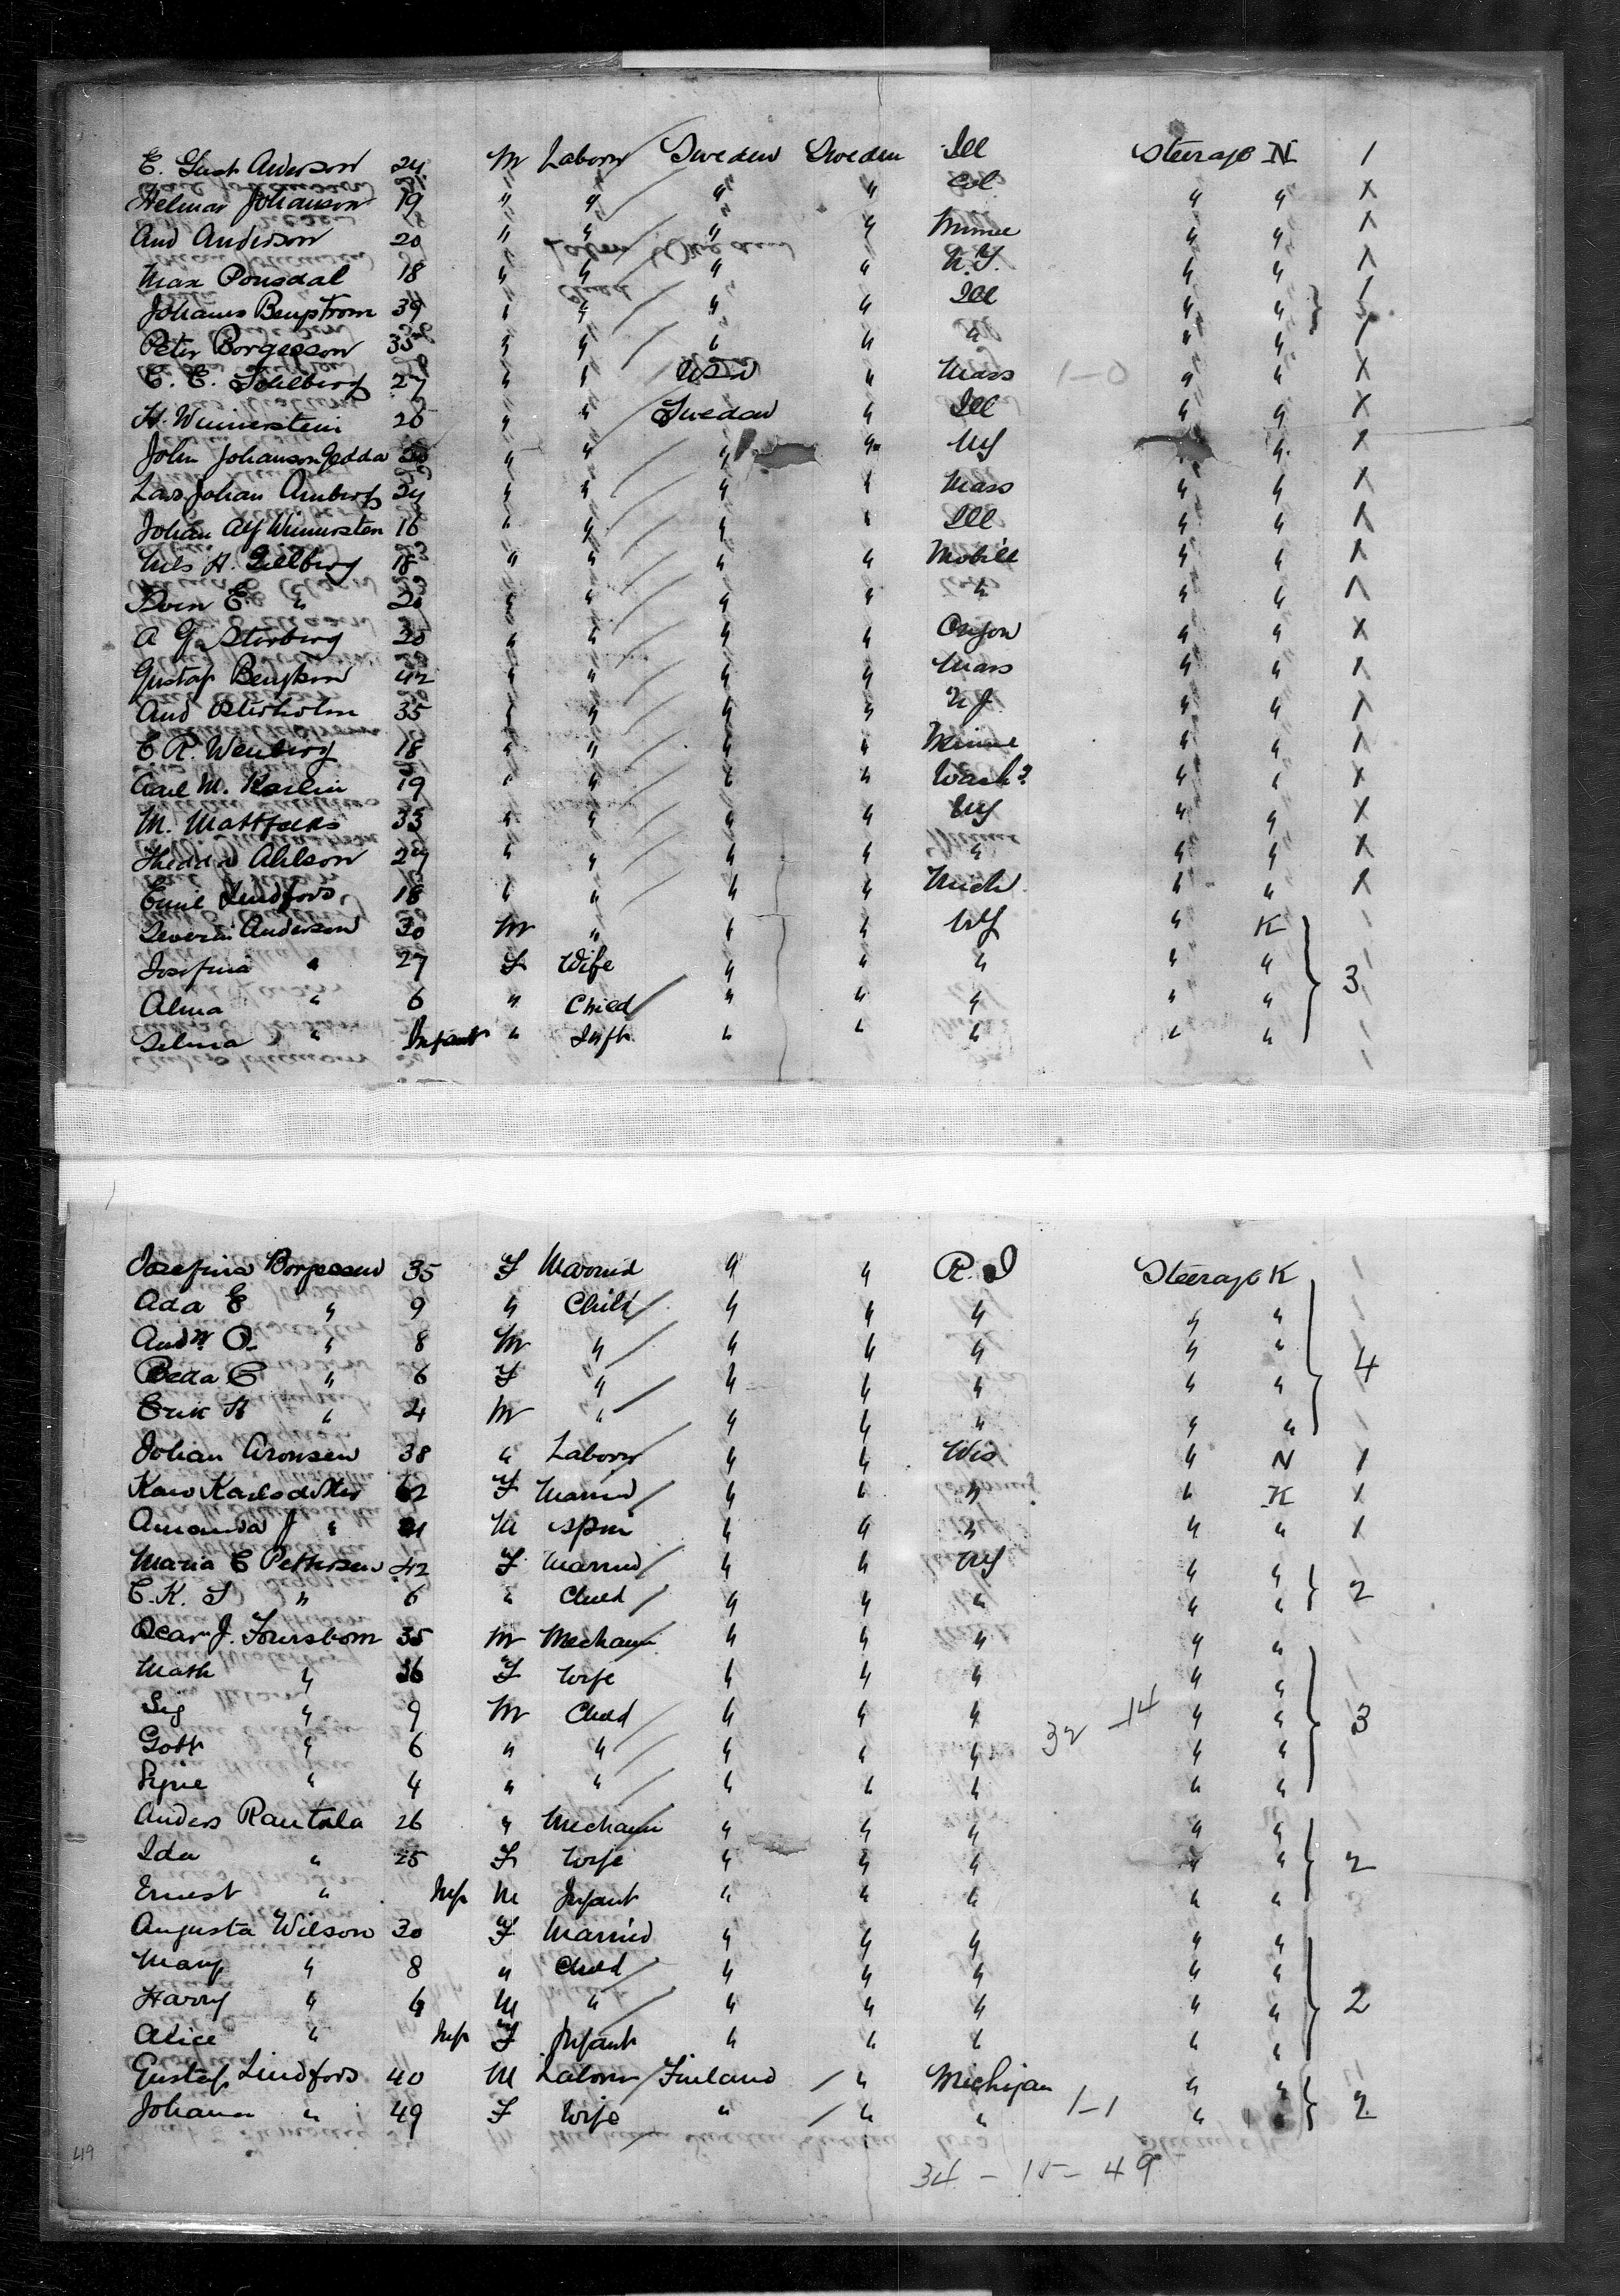 E. Gust Anderson 24 M Laborer Sweden Sweden Ill Steerage N 1
Helmar Johanson 19 " " " " Col " " X
And Anderson 20 " " " " Minne " " X
Max Ponsdal 18 " " " " N.Y. " " X
Johans Bengstrom 39 " " " " Ill " "
Peter Borgesson 35 " " " " " " " 1
C. E. Sohlberg 27 " " USA " Mass 1-0 " " X
H. Wimerstein 26 " " Sweden " Ill " " X
John Johanson Gedda " " " " NY " X
Lars Johan Amberg 24 " " " " Mass " " X
Johan Alf Wimersten 16 " " " " Ill " " X
Nels A. Gillberg 18 " " " " Mobile " " X
Sven E " 20 " " " " " " " X
A G. Storberg 20 " " " " Oregon " " X
Gustaf Bengtson 42 " " " " Mass " " 1
And Osterholm 35 " " " " N J. " " 1
E R. Wenberg 18 " " " " Minne " " 1
Carl M. Karlin 19 " " " " Wash? " " X
M. Mattfolks 33 " " " " NY " " X
Hedda Ahlson 27 " " " " " " " X
Emil Lindfors 18 " " " " Mich " " X
Severin Anderson 30 M " " " NY " K
Josefina " 27 F Wife " " " " " 3
Alma " 6 " Child " " " " "
Selma " Infant " Inft " " " " "
Josefina Borgesson 35 F Married " " R. I Steerage K
Ada E " 9 " Child " " " " "
Andw O " 8 M " " " " " " 4
Beda C " 6 F " " " " " "
Erik H " 4 M " " " " " "
Johan Aronsen 38 " Laborer " " Wis " N 1
Karo Karlsdotter 62 F Married " " " " K X
Amanda J " 21 M Spin " " " " " 1
Maria C Petterson 42 F Married " " NY " "
C. K. S " 6 " Child " " " " " 2
Oscar J. Foursbom 35 M Mechanic " " " " "
Math " 36 F Wife " " " " "
Sig " 9 M Child " " " 32 -14 " " 3
Gott " 6 " " " " " " "
Signe " 4 " " " " " " "
Anders Rautala 26 " Mechanic " " " " "
Ida " 25 F Wife " " " " " 2
Ernest " Inf M Infant " " " " "
Augusta Wilson 30 F Married " " " " "
Mary " 8 " Child " " " " "
Harry " 6 M " " " " " " 2
Alice " Inf F Infant " " " " "
Gustaf Lindfors 40 M Laborer Finland " Michigan " "
Johana " 49 F Wife " " " 1-1 " 2
34 - 15 - 49
419